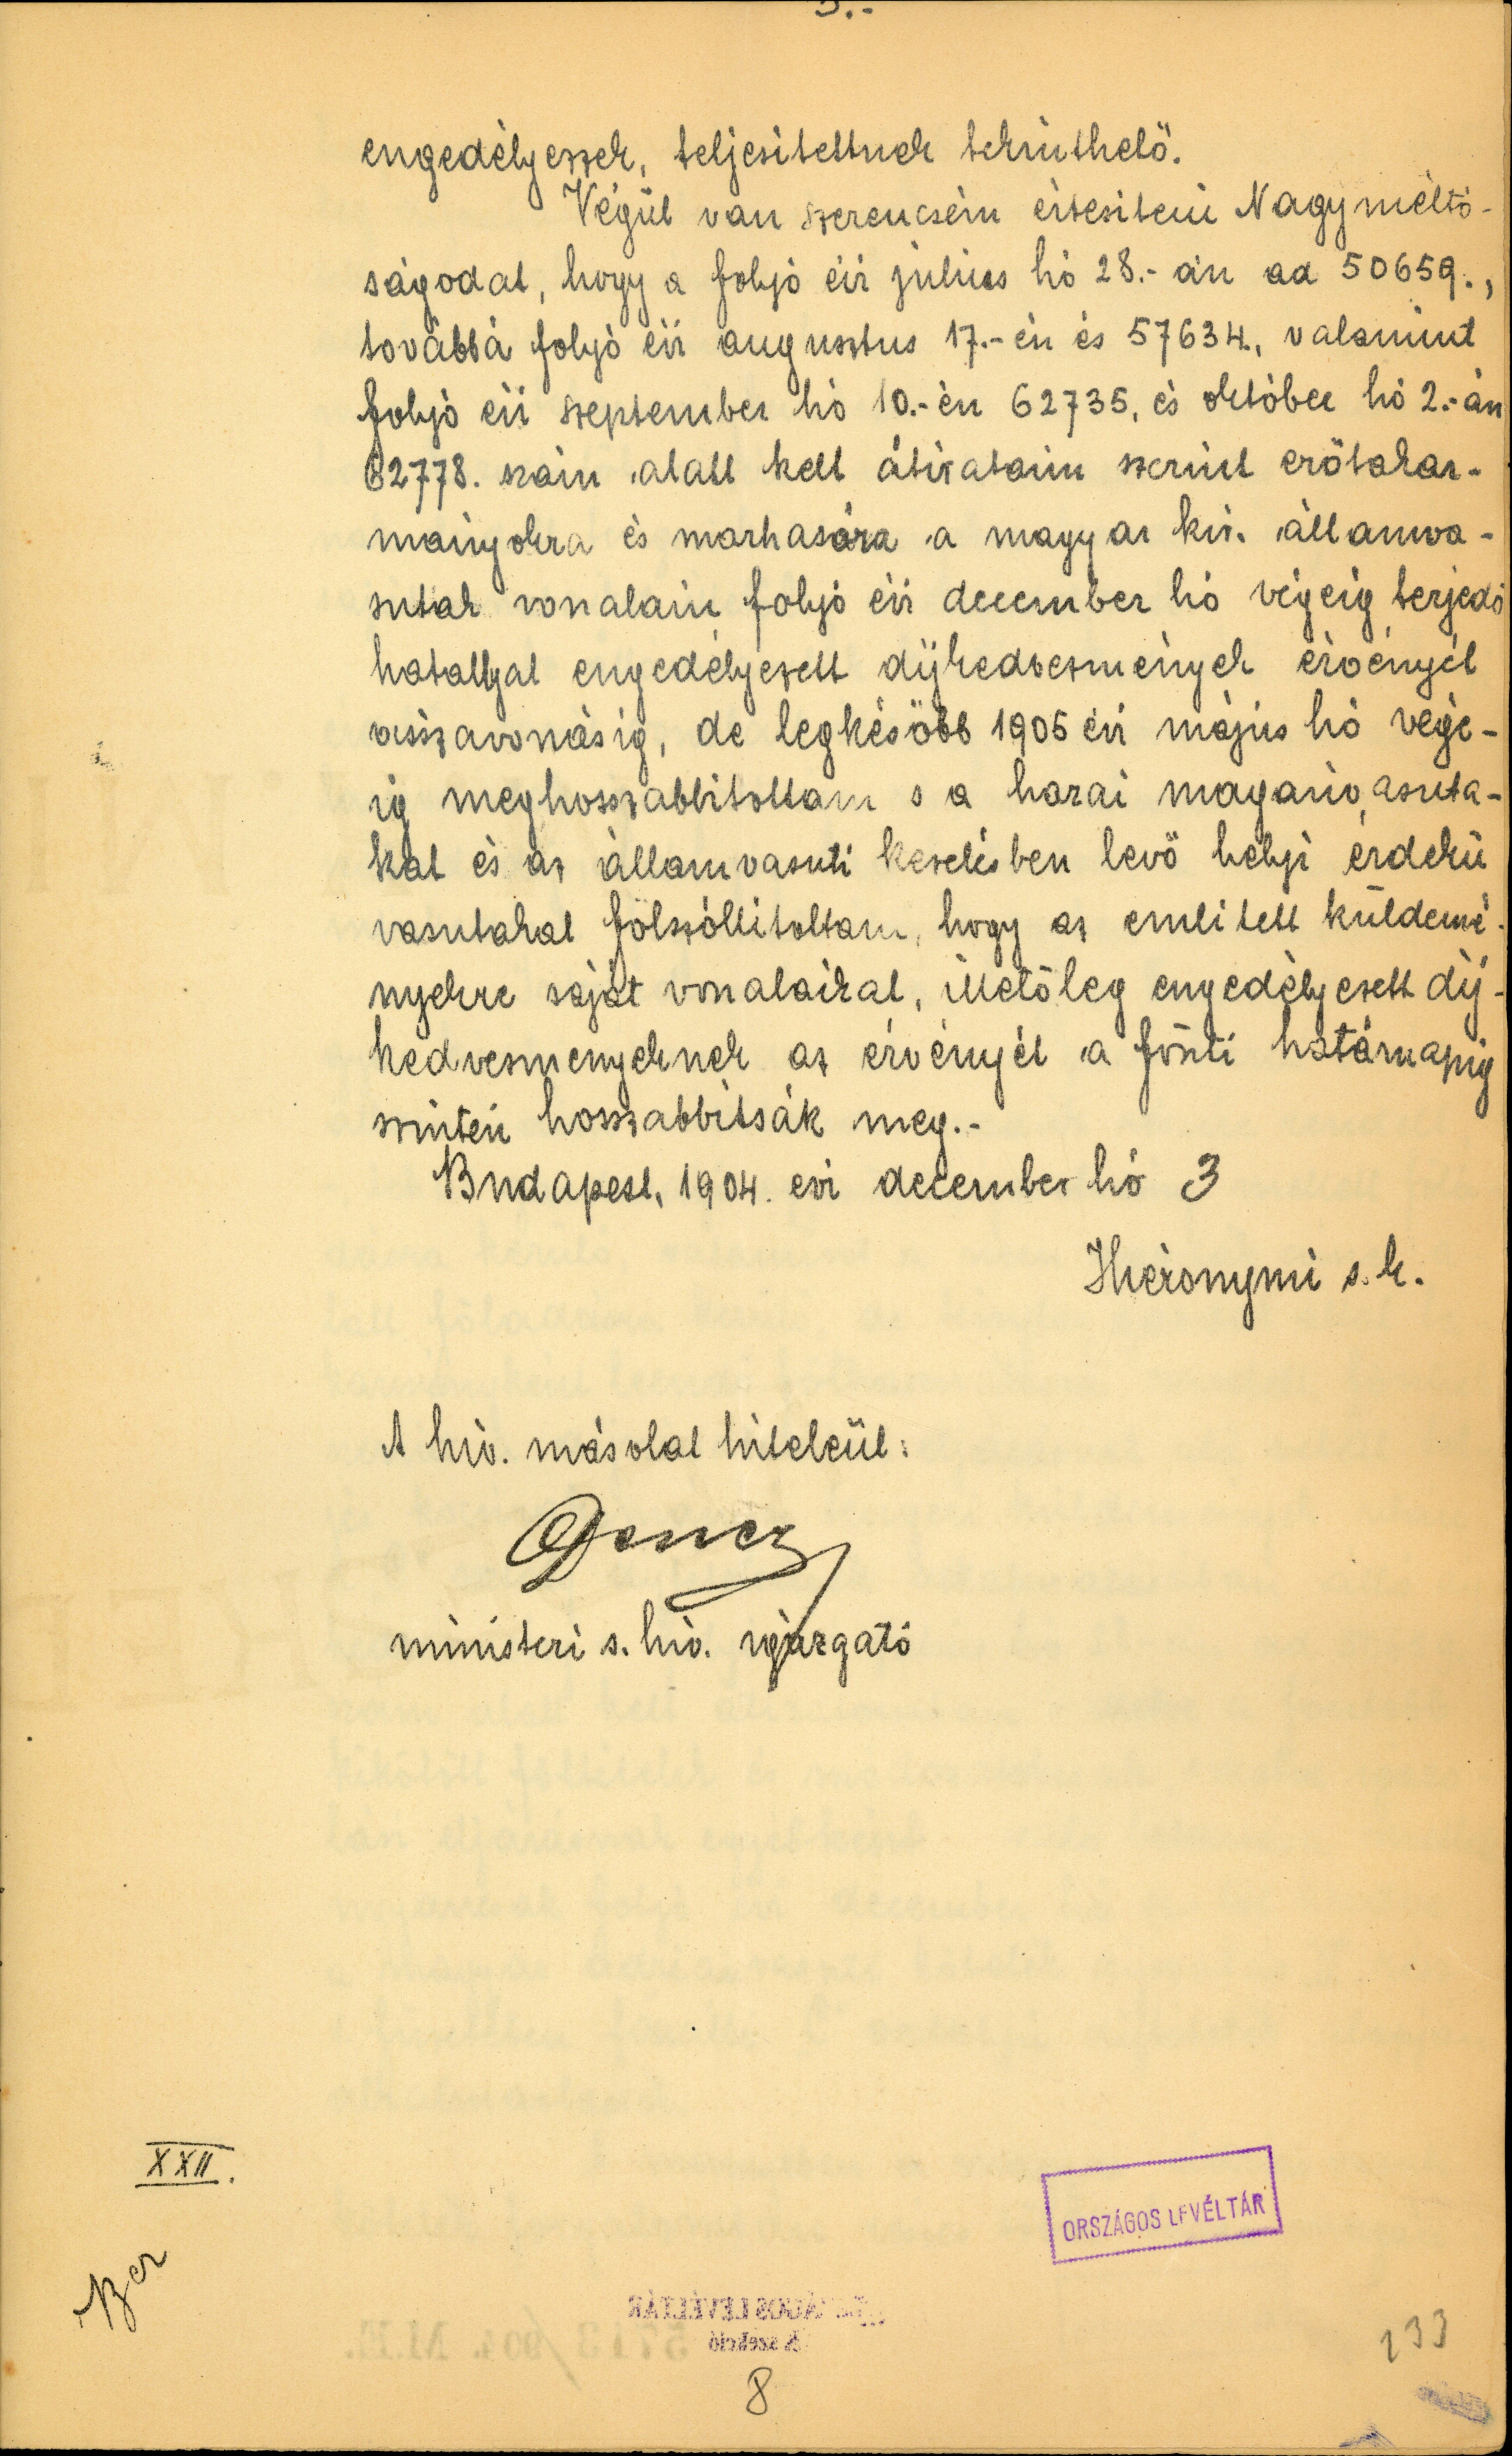 engedélyezzek, teljesitettnek tekinthetö.
Végül van szerencsém értesiteni Nagyméltó-
ságodat, hogy a folyó évi julius hó 28.-án ad 50659.,
továbbá folyó évi augusztus 17.-én és 57634, valamint
folyó évi szeptember hó 10.-én 62735, és október hó 2.-án
62778. szám alatt kelt átirataim szerint erötakar-
mányokra és marhasóra a magyar kir. államva-
sutak vonalain folyó évi december hó végéig terjedö
hatállyal engedélyezett díjkedvezmények érvényét
visszavonásig, de legkésöbb 1905 évi május hó vége-
ig meghosszabbitottam s a hazai magánvasuta-
kat és az államvasuti kezelésben levö helyi érdekü
vasutakat fölszóllitottam, hogy az emlitett küldemé-
nyekre saját vonalaikat, illetöleg engedélyezett díj-
kedvezmenyeknek az érvényét a fönti határnapig
szintén hosszabbitsák meg.-
Budapest, 1904. evi december hó 3
Hieronymi s.k.
A hiv. másolat hiteléül:
ministeri s. hiv. igazgató
XXII.
ORSZÁGOS LEVÉLTÁR
133
8